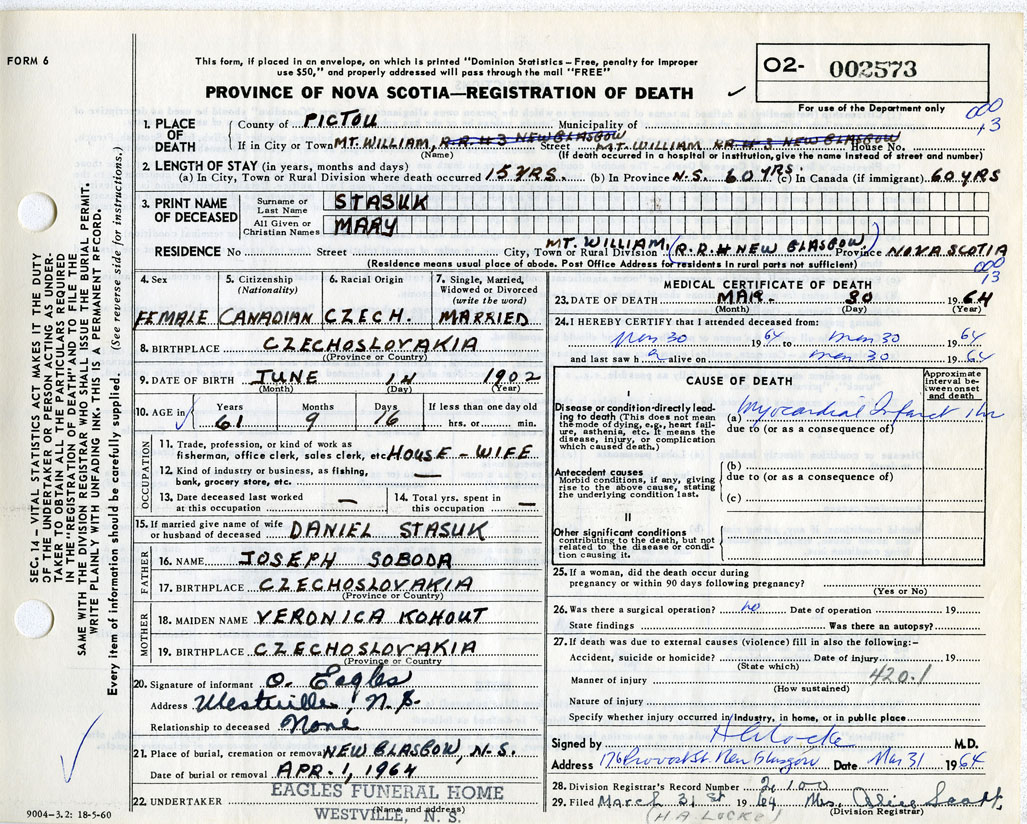 FORM 6
This form, if placed in an envelope, on which is printed "Dominion Statistics – Free, penalty for improper
use $50," and properly addressed will pass through the mail "FREE"
PROVINCE OF NOVA SCOTIA—REGISTRATION OF DEATH
O2- 002573
For use of the Department only
000
13
1. PLACE OF DEATH
County of PICTOU Municipality of
If in City or Town MT. WILLIAM, R.R.#3 NEW GLASGOW Street MT. WILLIAM R.R.#3 NEW GLASGOW House No.
(Name) (If death occurred in a hospital or institution, give the name instead of street and number)
2. LENGTH OF STAY (in years, months and days)
(a) In City, Town or Rural Division where death occurred 15 YRS. (b) In Province N.S. 60 YRS. (c) In Canada (if immigrant) 60 YRS
3. PRINT NAME OF DECEASED
Surname or Last Name STASUK
All Given or Christian Names MARY
RESIDENCE No Street City, Town or Rural Division MT. WILLIAM, (R.R.# NEW GLASGOW) Province NOVA SCOTIA
(Residence means usual place of abode. Post Office Address for residents in rural parts not sufficient)
000
13
4. Sex
FEMALE
5. Citizenship (Nationality)
CANADIAN
6. Racial Origin
CZECH.
7. Single, Married, Widowed or Divorced (write the word)
MARRIED
8. BIRTHPLACE CZECHOSLOVAKIA
(Province or Country)
9. DATE OF BIRTH JUNE 14 1902
(Month) (Day) (Year)
10. AGE in Years Months Days If less than one day old
61 9 16 hrs. or min.
OCCUPATION
11. Trade, profession, or kind of work as
fisherman, office clerk, sales clerk, etc. HOUSE-WIFE
12. Kind of industry or business, as fishing,
bank, grocery store, etc. —
13. Date deceased last worked
at this occupation —
14. Total yrs. spent in
this occupation —
15. If married give name of wife
or husband of deceased DANIEL STASUK
FATHER
16. NAME JOSEPH SOBODA
17. BIRTHPLACE CZECHOSLOVAKIA
(Province or Country)
MOTHER
18. MAIDEN NAME VERONICA KOHOUT
19. BIRTHPLACE CZECHOSLOVAKIA
(Province or Country
20. Signature of informant O. Eagles
Address Westville, N.S.
Relationship to deceased None
21. Place of burial, cremation or removal NEW GLASGOW, N.S.
Date of burial or removal APR. 1, 1964
22. UNDERTAKER EAGLES FUNERAL HOME
(Name and address)
WESTVILLE, N. S.
MEDICAL CERTIFICATE OF DEATH
23. DATE OF DEATH MAR. 30 1964
(Month) (Day) (Year)
24. I HEREBY CERTIFY that I attended deceased from:
Mar 30 1964 to Mar 30 1964
and last saw h alive on Mar 30 1964
CAUSE OF DEATH
Approximate interval between onset and death
I
Disease or condition directly leading to death (This does not mean the mode of dying, e.g., heart failure, asthenia, etc. It means the disease, injury, or complication which caused death.)
(a) Myocardial Infarct 1 hr
due to (or as a consequence of)
Antecedent causes
Morbid conditions, if any, giving rise to the above cause, stating the underlying condition last.
(b)
due to (or as a consequence of)
(c)
II
Other significant conditions
contributing to the death, but not related to the disease or condition causing it.
25. If a woman, did the death occur during
pregnancy or within 90 days following pregnancy?
(Yes or No)
26. Was there a surgical operation? no Date of operation 19
State findings Was there an autopsy?
27. If death was due to external causes (violence) fill in also the following:–
Accident, suicide or homicide? Date of injury 19
(State which)
Manner of injury 420.1
(How sustained)
Nature of injury
Specify whether injury occurred in industry, in home, or in public place
Signed by H A Locke M.D.
Address 176 Provost St. New Glasgow Date Mar 31 1964
28. Division Registrar's Record Number
29. Filed March 31st 1964 Mrs. Alice Scott
(H A LOCKE) (Division Registrar)
SEC. 14 – VITAL STATISTICS ACT MAKES IT THE DUTY
OF THE UNDERTAKER OR PERSON ACTING AS UNDER-
TAKER TO OBTAIN ALL THE PARTICULARS REQUIRED
IN THE "REGISTRATION OF DEATH" AND TO FILE THE
SAME WITH THE DIVISION REGISTRAR WHO SHALL ISSUE THE BURIAL PERMIT.
WRITE PLAINLY WITH UNFADING INK. THIS IS A PERMANENT RECORD.
Every item of information should be carefully supplied. (See reverse side for instructions.)
9004-3.2: 18-5-60